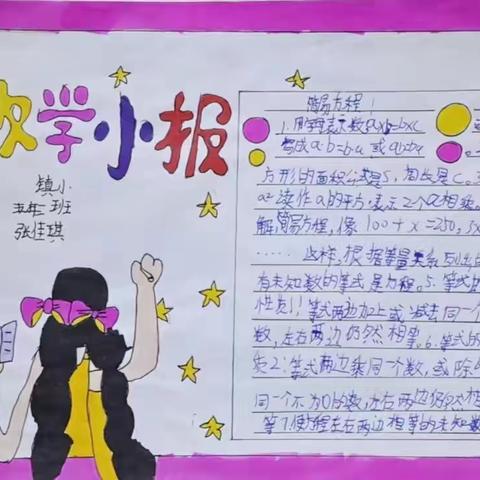 数学小报
镇小
五年班
张佳琪
简易方程
1.用字母表示数a×b=b×a
写成a·b=b·a 或ab=ba
方形的面积公式是S,周长是C。
a²读作a的平方,表示2个a相乘。
解简易方程,像100+x=250,3x
……这样,根据等量关系列出的
有未知数的等式是方程。5.等式的
性质1:等式两边加上或减去同一个
数,左右两边仍然相等。6.等式的
质2:等式两边乘同一个数,或除
同一个不为0的数,左右两边仍然相
等7.使方程左右两边相等的未知数